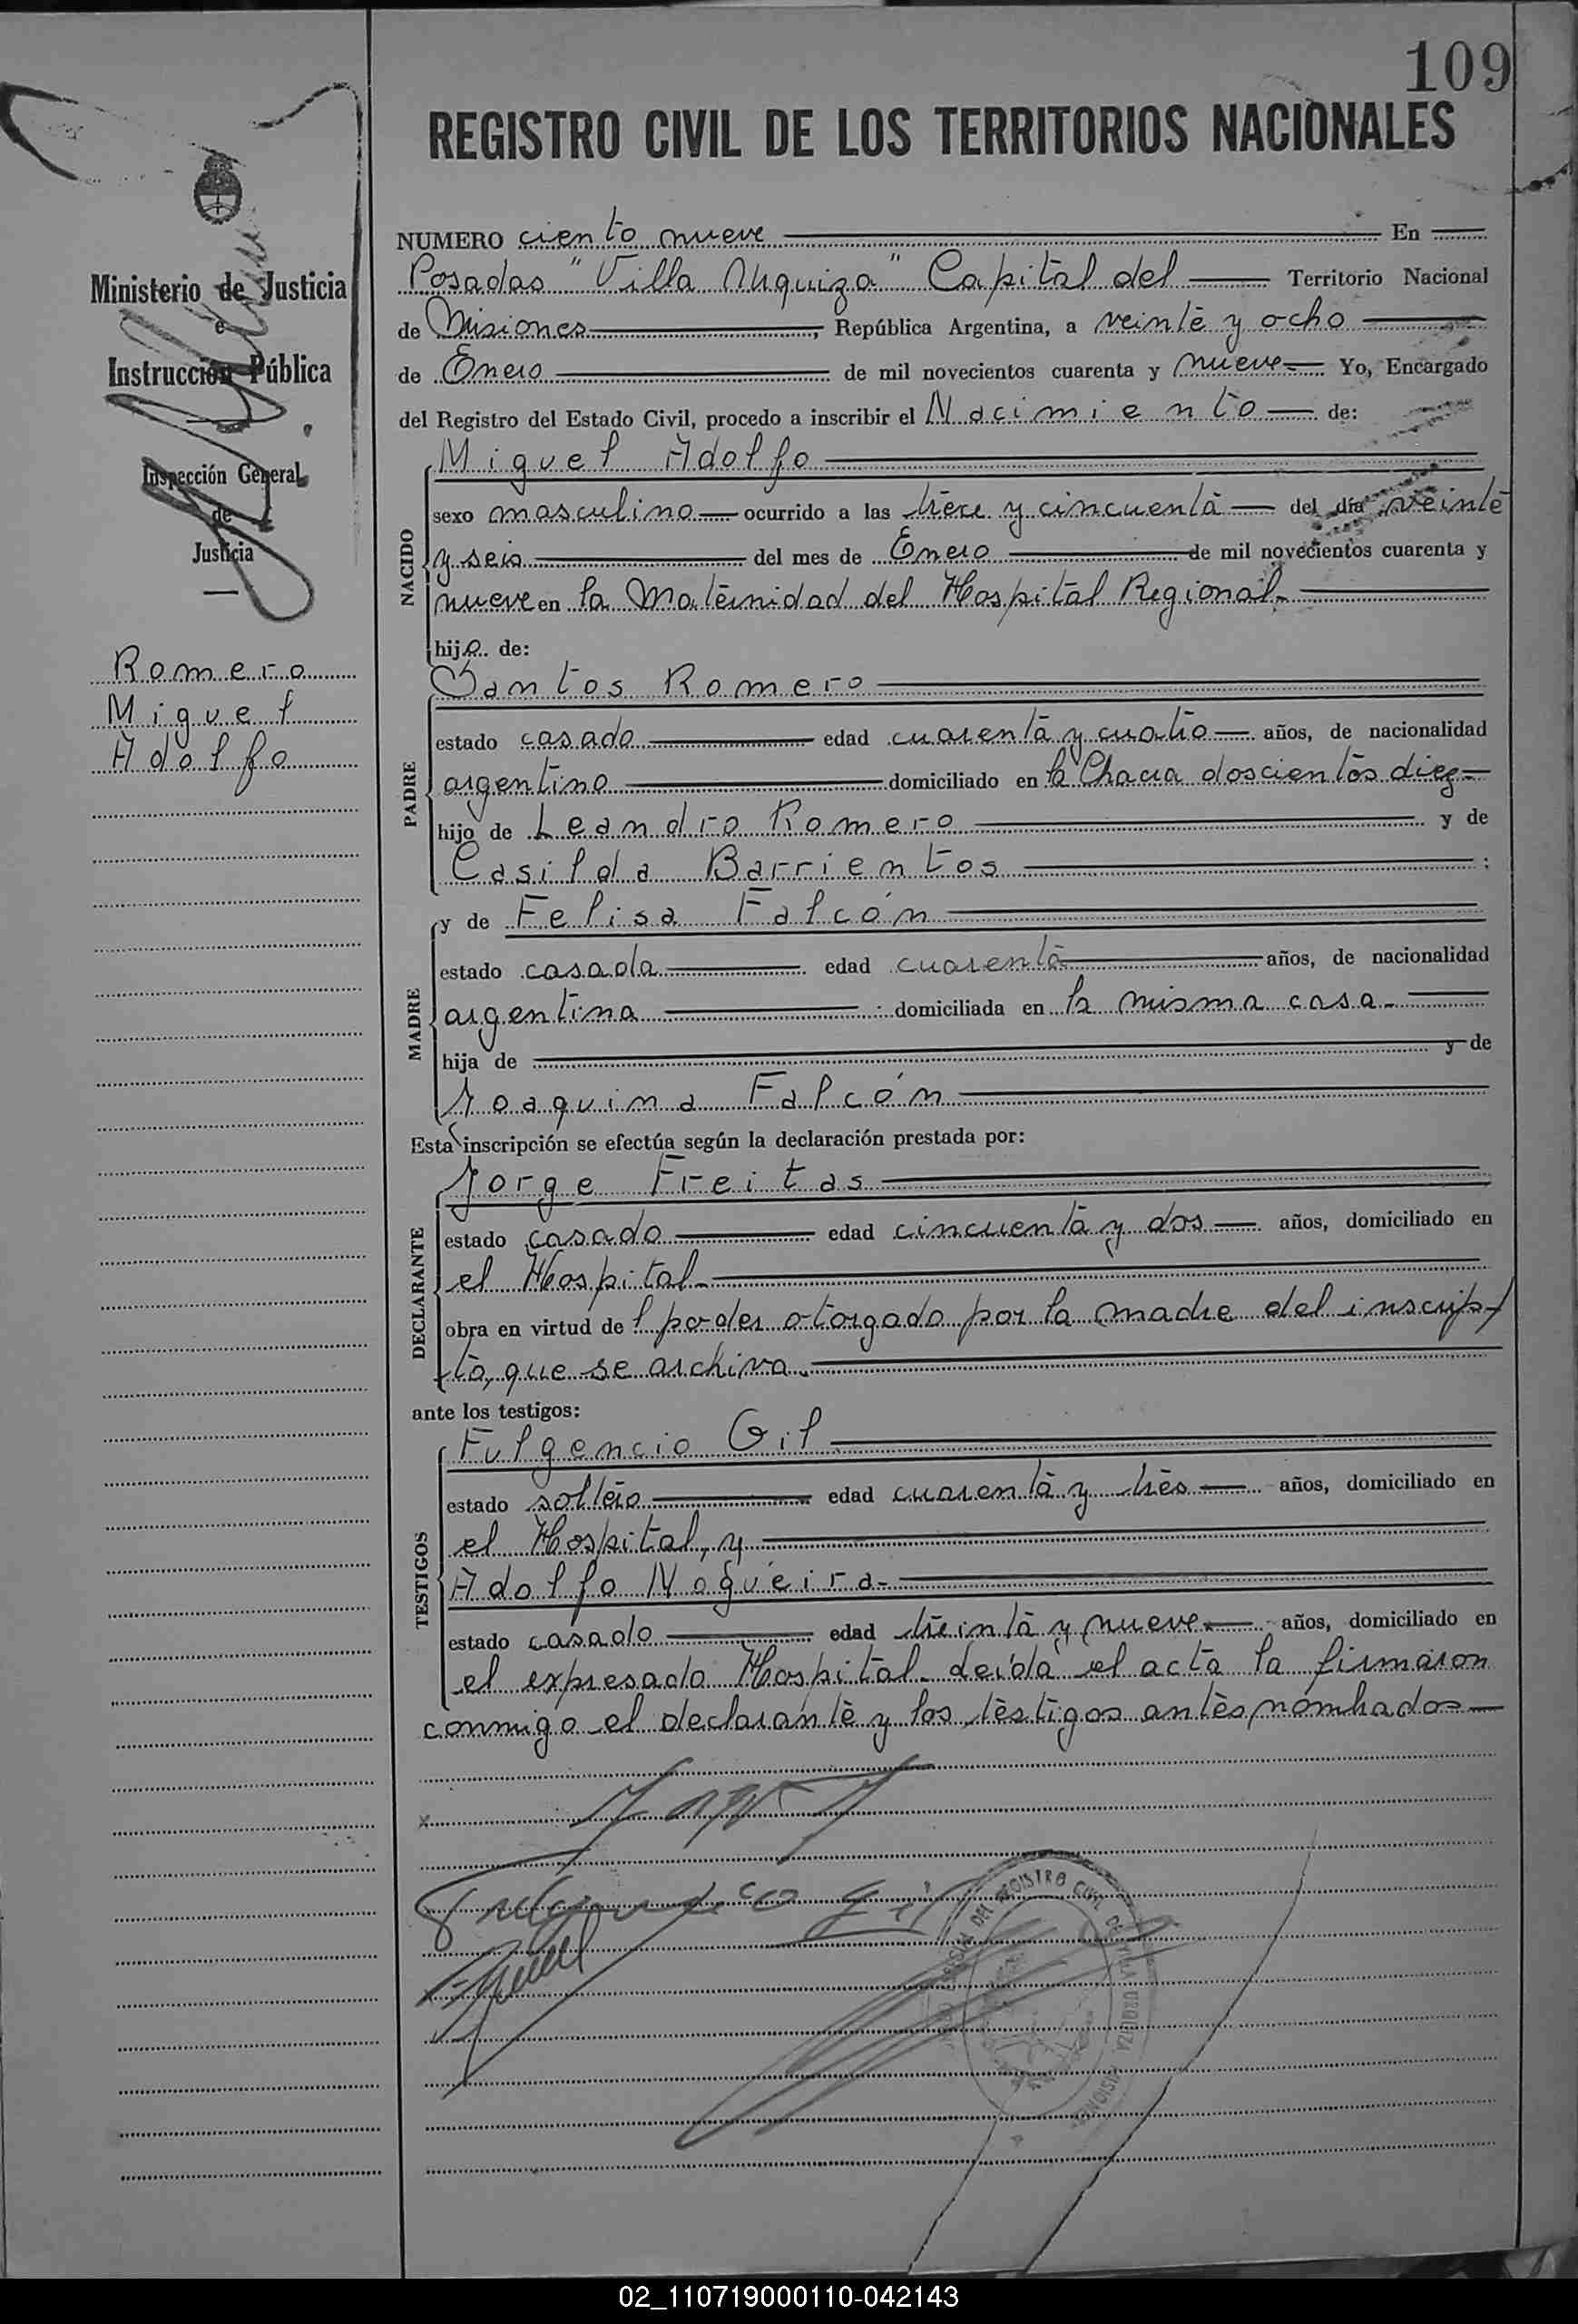 109
REGISTRO CIVIL DE LOS TERRITORIOS NACIONALES
Ministerio de Justicia
e
Instrucción Pública
Inspección General
de
Justicia
Romero
Miguel
Adolfo
NUMERO ciento nueve En
Posadas "Villa Urquiza" Capital del Territorio Nacional
de Misiones, República Argentina, a veinte y ocho
de Enero de mil novecientos cuarenta y nueve.- Yo, Encargado
del Registro del Estado Civil, procedo a inscribir el Nacimiento de:
NACIDO
Miguel Adolfo
sexo masculino ocurrido a las trece y cincuenta del día veinte
y seis del mes de Enero de mil novecientos cuarenta y
nueve en la Maternidad del Hospital Regional.-
hijo de:
PADRE
Santos Romero
estado casado edad cuarenta y cuatro años, de nacionalidad
argentino domiciliado en la Chacra doscientos diez-
hijo de Leandro Romero y de
Casilda Barrientos ;
MADRE
y de Felisa Falcón
estado casada edad cuarenta años, de nacionalidad
argentina domiciliada en la misma casa.-
hija de y de
Joaquina Falcón
Esta inscripción se efectúa según la declaración prestada por:
DECLARANTE
Jorge Freitas
estado casado edad cincuenta y dos años, domiciliado en
el Hospital.-
obra en virtud del poder otorgado por la madre del inscrip-
to, que se archiva.-
ante los testigos:
TESTIGOS
Fulgencio Gil
estado soltero edad cuarenta y tres años, domiciliado en
el Hospital, y
Adolfo Nogueira-
estado casado edad treinta y nueve.- años, domiciliado en
el expresado Hospital. Leída el acta la firmaron
conmigo el declarante y los testigos antes nombrados-
x
Fulgencio Gil
DEL REGISTRO CIVIL DE VILLA URQUIZA MISIONES
02_110719000110-042143